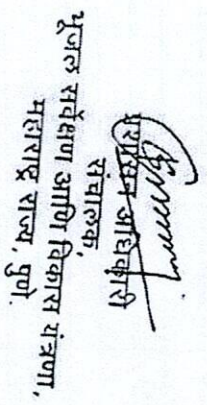 प्रशासन अधिकारी
संचालक,
भूजल सर्वेक्षण आणि विकास यंत्रणा,
महाराष्ट्र राज्य, पुणे.